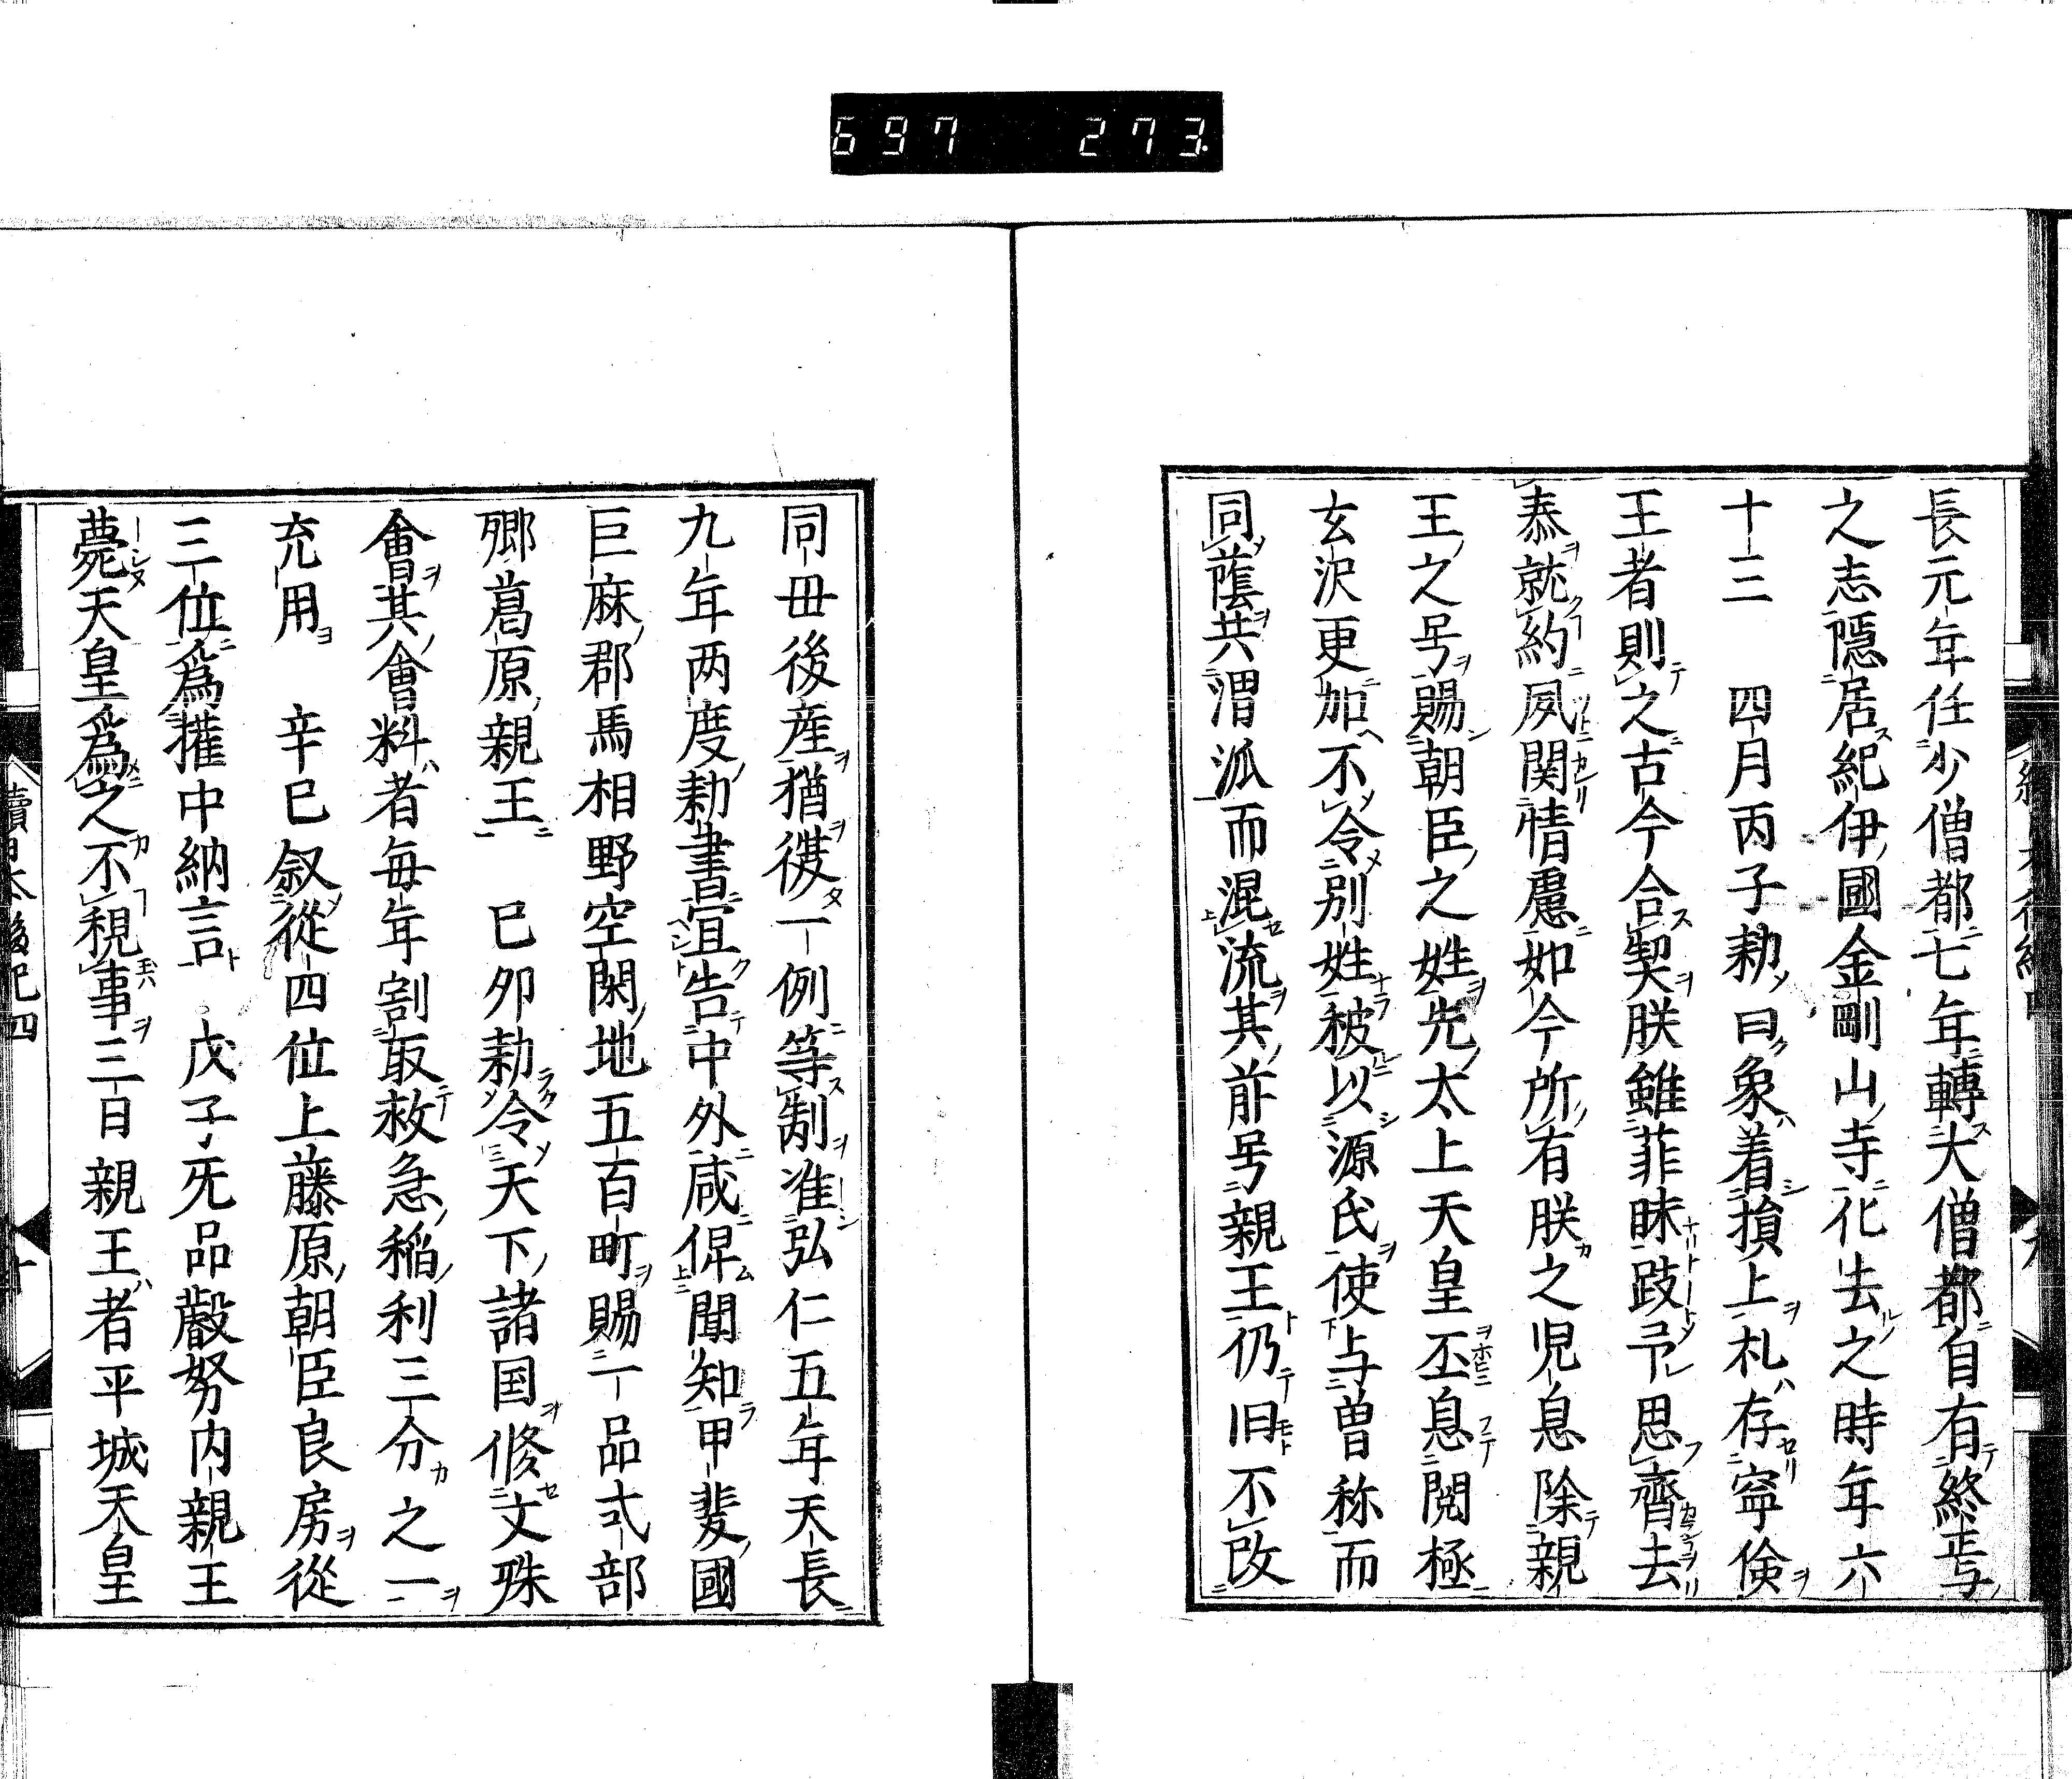 697 273
長元年任少僧都七年轉大僧都自有終焉
之志隠居紀伊國金剛山寺化去之時年六
十三 四月丙子勅曰象着損上札存寧倹
王者則之古今合契朕雖菲昧跂予思齊去
恭就約夙関情慮如今所有朕之児息除親
王之号賜朝臣之姓先太上天皇丕息閲極
玄沢更加不令別姓被以源氏使与曽称而
同䕃共渭派而混流其前号親王仍旧不改
同毋後産猶後一例等制准弘仁五年天長
九年两度勅書宣告中外咸俾聞知甲斐國
巨麻郡馬相野空閑地五百町賜一品式部
卿葛原親王 己夘勅令天下諸国修文殊
會其會料者每年割取救急稲利三分之一
充用 辛巳叙從四位上藤原朝臣良房從
三位爲攉中納言 戊子无品齾努内親王
薨天皇爲之不視事三日親王者平城天皇
續日本後紀四